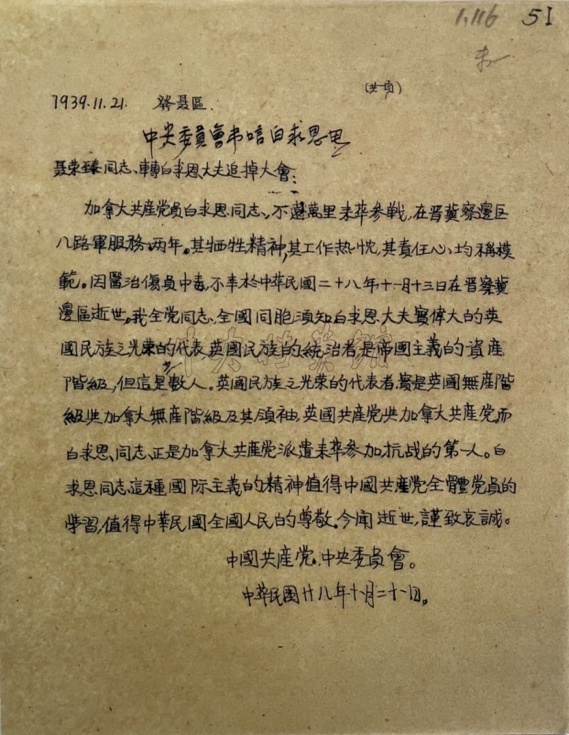 1.116 51
(共一頁)
1939.11.21.
中央委員會弔唁白求思电
聶荣臻同志、轉白求思大夫追掉大會:
加拿大共産党员白求思同志、不遠萬里来華参战,在晋冀察邊区
八路軍服務、两年。其牺牲精神,其工作热忱,其責任心、均稱模
範。因醫治傷員中毒、不幸於中華民國二十八年十一月十三日在晋察冀
邊區逝世。我全党同志、全國同胞須知白求思大夫實偉大的英
國民族之光荣的代表、英國民族的統治者是帝國主義的資産
階級,但這是少数人。英國民族之光荣的代表者,實是英國無産階
級與加拿大無産階級及其領袖,英國共産党與加拿大共産党,而
白求思、同志、正是加拿大共産党派遣来華参加抗战的第一人。白
求思同志這種國际主義的精神值得中國共産党全體党員的
學習,值得中華民國全國人民的尊敬。今聞逝世,謹致哀誠。
中國共産党、中央委員會。
中華民國廿八年十一月二十一日。